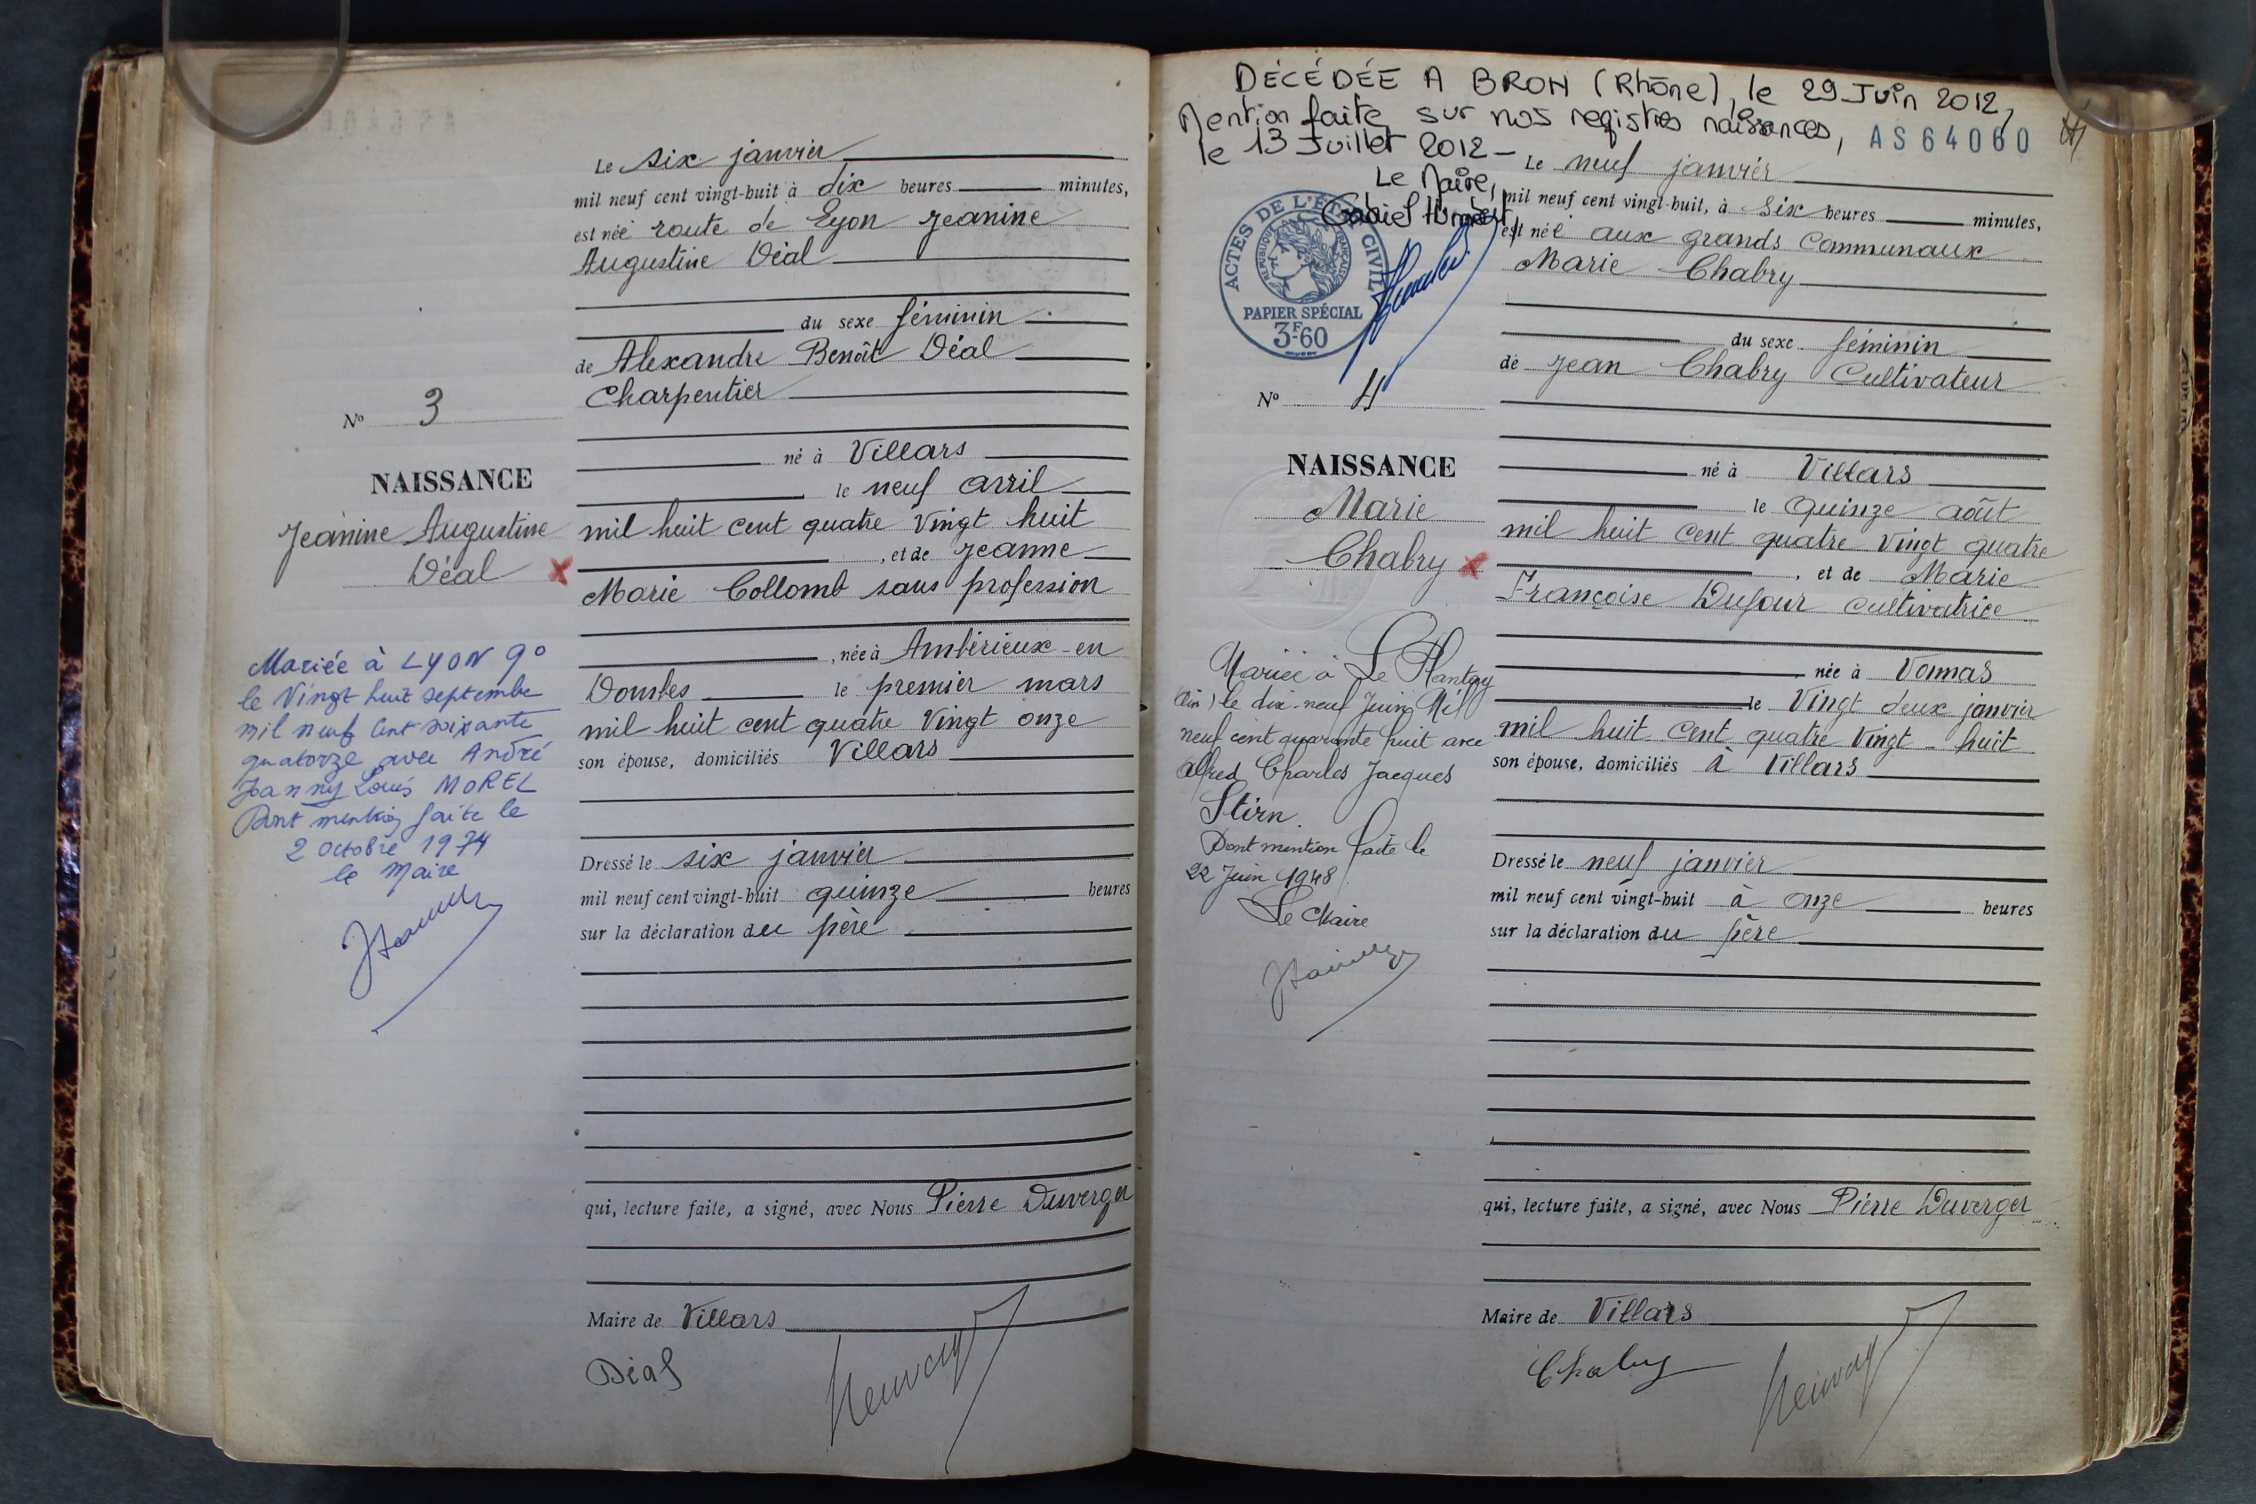 Le six janvier
mil neuf cent vingt-huit à dix heures minutes,
est née route de Lyon Jeanine
Augustine Déal
du sexe féminin
de Alexandre Benoît Déal
Charpentier
né à Villars
le neuf avril
mil huit cent quatre vingt huit
, et de Jeanne
Marie Collomb sans profession
, née à Ambérieux-en
Dombes le premier mars
mil huit cent quatre vingt onze
son épouse, domiciliés Villars
Dressé le six janvier
mil neuf cent vingt-huit quinze heures
sur la déclaration du père
qui, lecture faite, a signé, avec Nous Pierre Duverger
Maire de Villars
Déal
No 3
NAISSANCE
Jeanine Augustine
Déal
Mariée à LYON 9°
le Vingt huit septembre
mil neuf cent soixante
quatorze avec André
Joanny Louis MOREL
Dont mention faite le
2 octobre 1974
le Maire
DÉCÉDÉE A BRON (Rhône), le 29 Juin 2012,
Mention faite sur nos registres naissances,
le 13 Juillet 2012 -
Le Maire,
AS 64060
ACTES DE L'ÉTAT CIVIL
RÉPUBLIQUE FRANÇAISE
PAPIER SPÉCIAL
3F.60
No 4
NAISSANCE
Marie
Chabry
Mariée à Le Plantay
(Ain) le dix-neuf Juin Mil
neuf cent quarante huit avec
Alfred Charles Jacques
Stirn.
Dont mention faite le
22 Juin 1948
Le Maire
Le neuf janvier
mil neuf cent vingt-huit, à six heures minutes,
est née aux grands Communaux
Marie Chabry
du sexe féminin
de Jean Chabry Cultivateur
né à Villars
le quinze août
mil huit cent quatre vingt quatre
, et de Marie
Françoise Dufour cultivatrice
née à Vonnas
le Vingt deux janvier
mil huit cent quatre vingt-huit
son épouse, domiciliés à Villars
Dressé le neuf janvier
mil neuf cent vingt-huit à onze heures
sur la déclaration du père
qui, lecture faite, a signé, avec Nous Pierre Duverger
Maire de Villars
Chabry